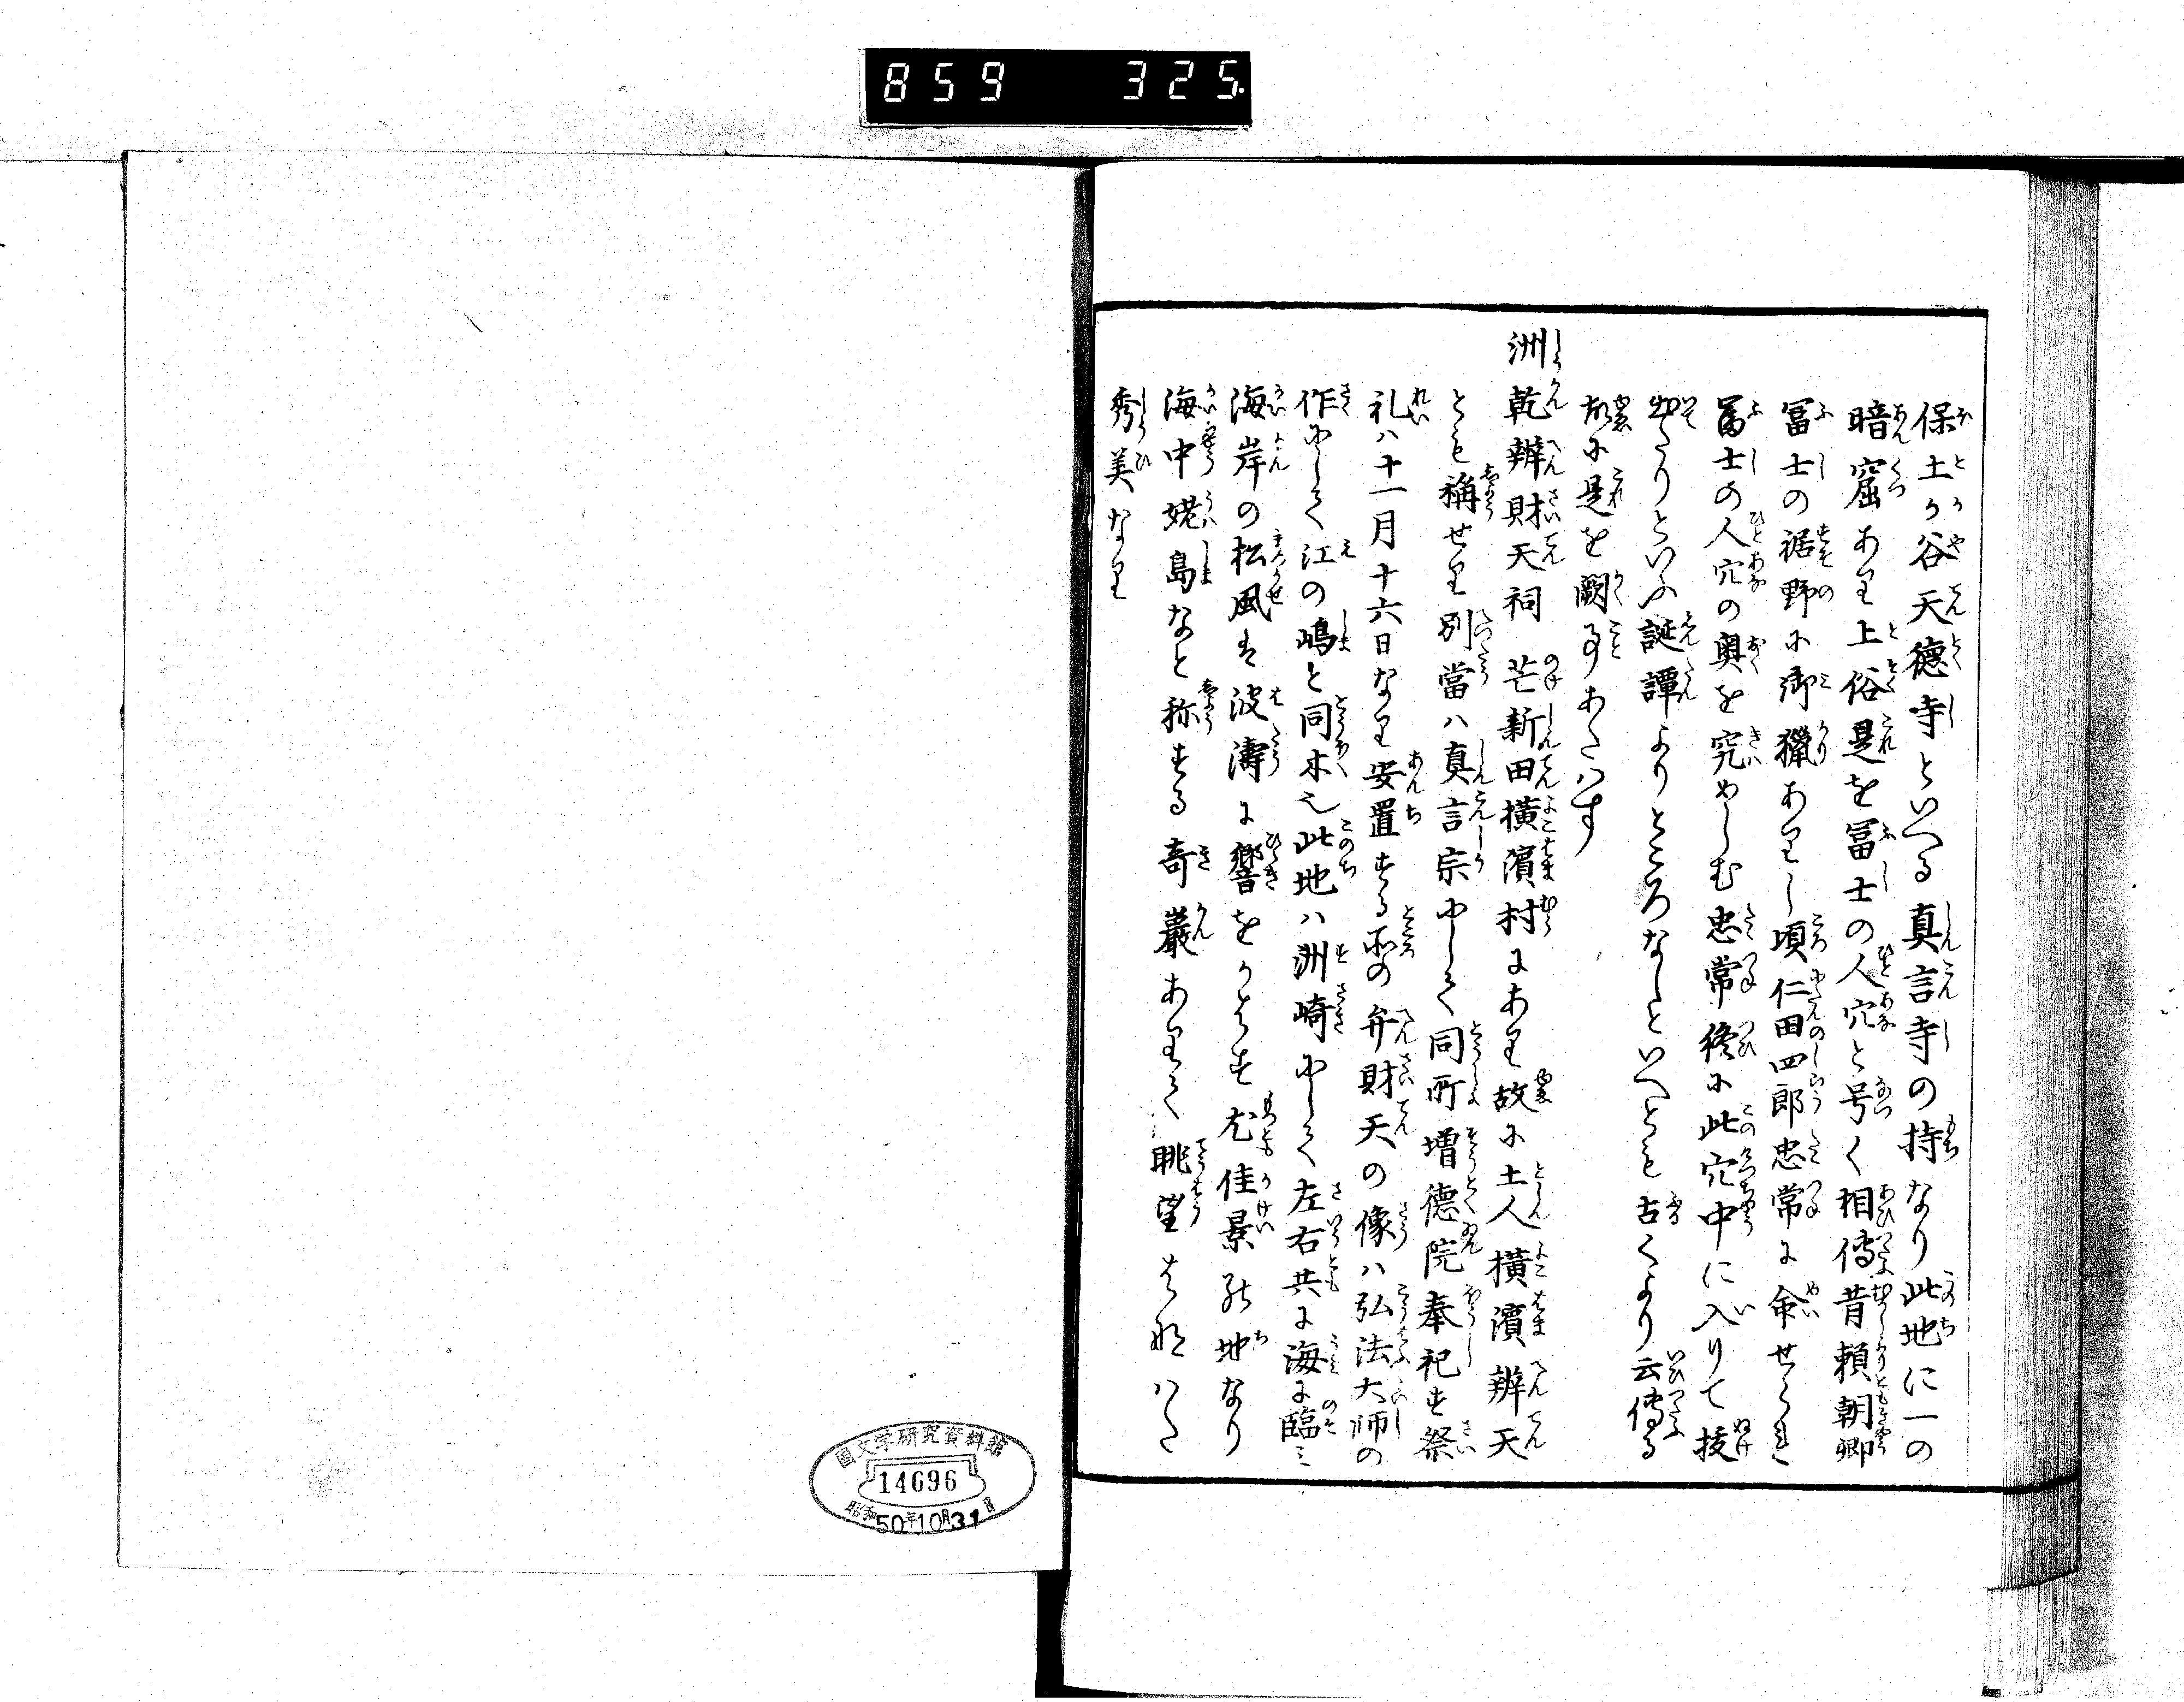 859 325.
保土ケ谷天徳寺といへる真言寺の持なり此地に一の
暗窟あり土俗是を冨士の人穴と号く相傳昔頼朝卿
冨士の裾野に御獵ありし頃仁田四郎忠常に命せられ
冨士の人穴の奥を究めしむ忠常終に此穴中に入りて抜
出たりといふ誕譚よりところなしといへとも古くより云傳る
故に是を闕事あたはす
洲乾辨財天祠 芒新田横濱村にあり故に土人横濱辨天
とも称せり別當ハ真言宗にして同所増徳院奉祀す祭
礼ハ十一月十六日なり安置する所の弁財天の像ハ弘法大師の
作にして江の嶋と同木也此地ハ洲崎にして左右共に海に臨ミ
海岸の松風は波濤に響をかはす尤佳景の地なり
海中姥島なと称する奇巌ありて眺望はなハた
秀美なり
国文学研究資料館
14696
昭和50年10月31日